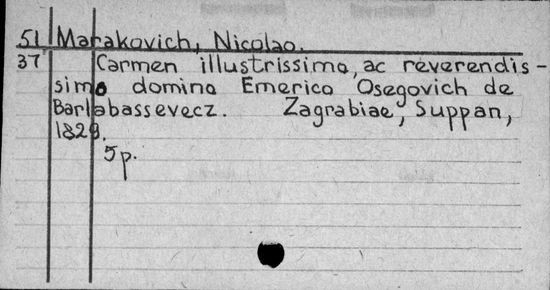 51 Marakovich, Nicolao.
37 Carmen illustrissimo, ac reverendis-
simo domino Emerico Osegovich de
Barlabassevecz. Zagrabiae, Suppan,
1829.
5 p.